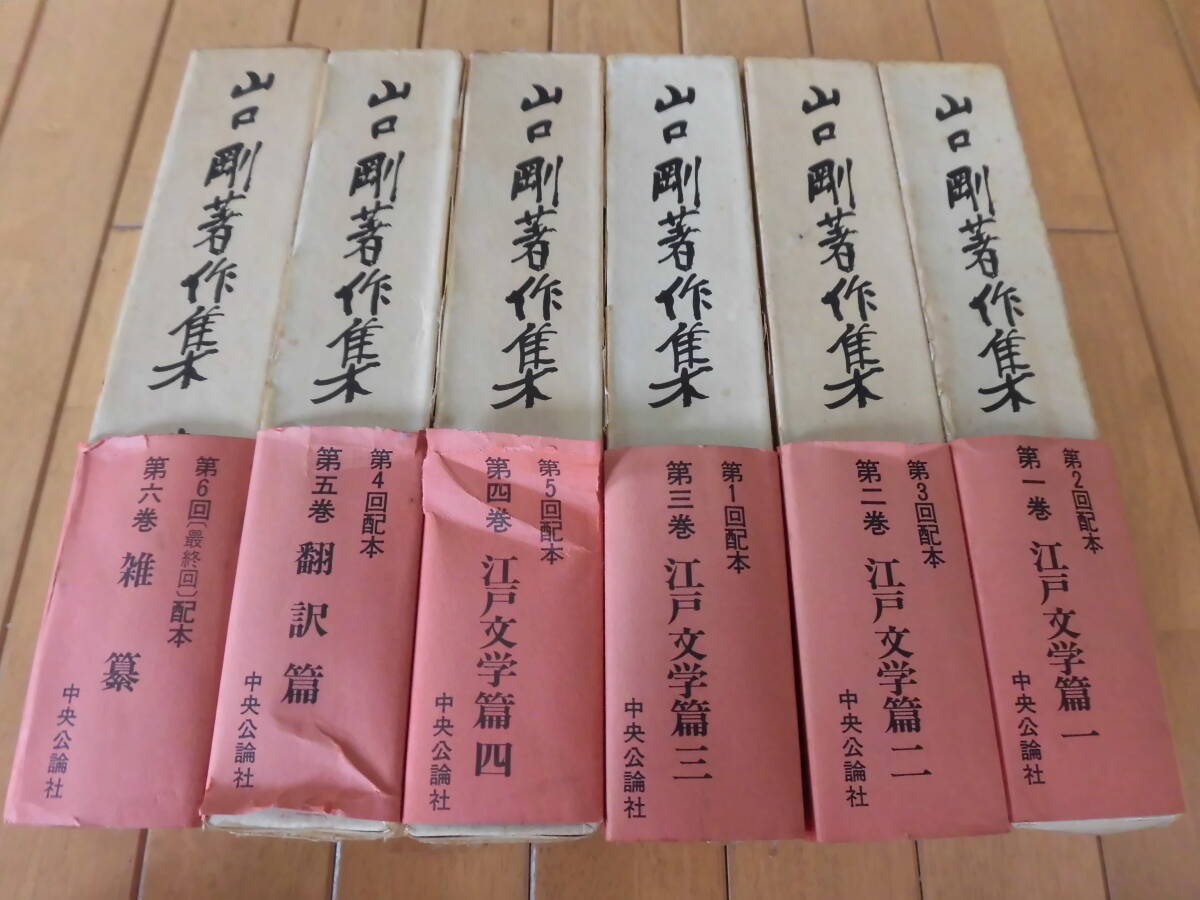 山口剛著作集
第2回配本
第一巻 江戸文学篇 一
中央公論社
山口剛著作集
第3回配本
第二巻 江戸文学篇 二
中央公論社
山口剛著作集
第1回配本
第三巻 江戸文学篇 三
中央公論社
山口剛著作集
第5回配本
第四巻 江戸文学篇 四
中央公論社
山口剛著作集
第4回配本
第五巻 翻訳篇
中央公論社
山口剛著作集
第6回〔最終回〕配本
第六巻 雑纂
中央公論社